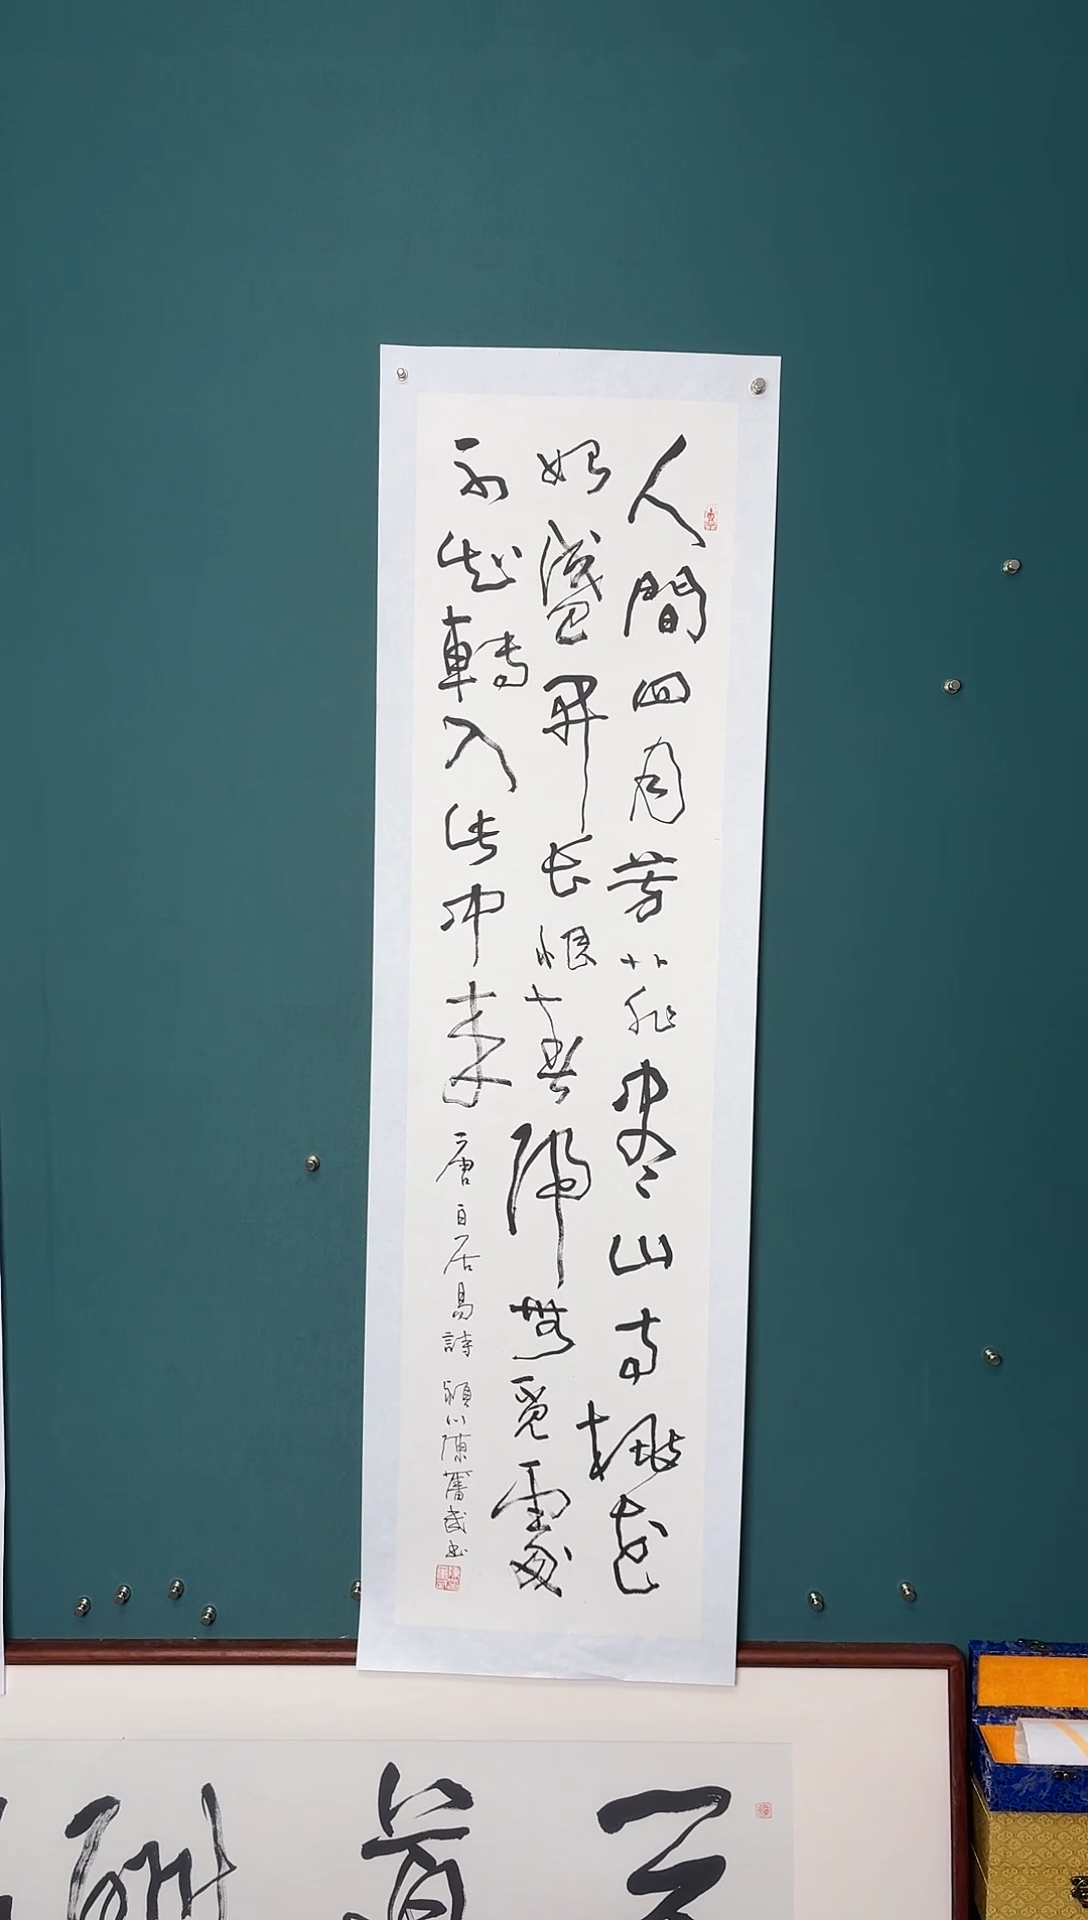 人間四月芳菲盡山寺桃花
始盛開长恨春歸無覓處
不知轉入此中來 唐白居易詩 潁川陳
天道酬